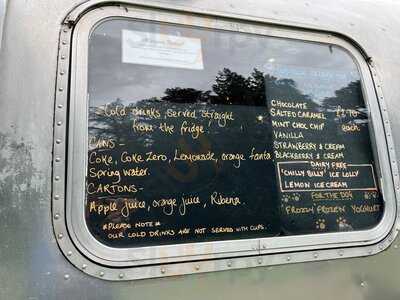 Cold drinks served straight
from the fridge,
CANS -
Coke, Coke Zero, Lemonade, orange fanta
Spring water.
CARTONS -
Apple juice, orange juice, Ribena.
*PLEASE NOTE*
OUR COLD DRINKS ARE NOT SERVED WITH CUPS.
CHOCOLATE
SALTED CARAMEL
MINT CHOC CHIP
VANILLA
STRAWBERRY & CREAM
BLACKBERRY & CREAM
each
DAIRY FREE
"CHILLY BILLY" ICE LOLLY
LEMON ICE CREAM
FOR THE DOG
FROZZY FROZEN YOGHURT